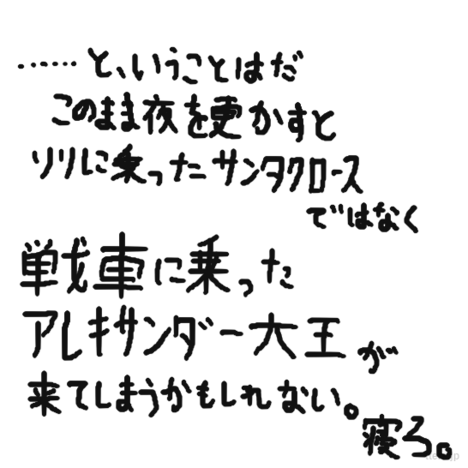 ……と、いうことはだ
このまま夜を更かすと
ソリに乗ったサンタクロース
ではなく
戦車に乗った
アレキサンダー大王が
来てしまうかもしれない。
寝ろ。